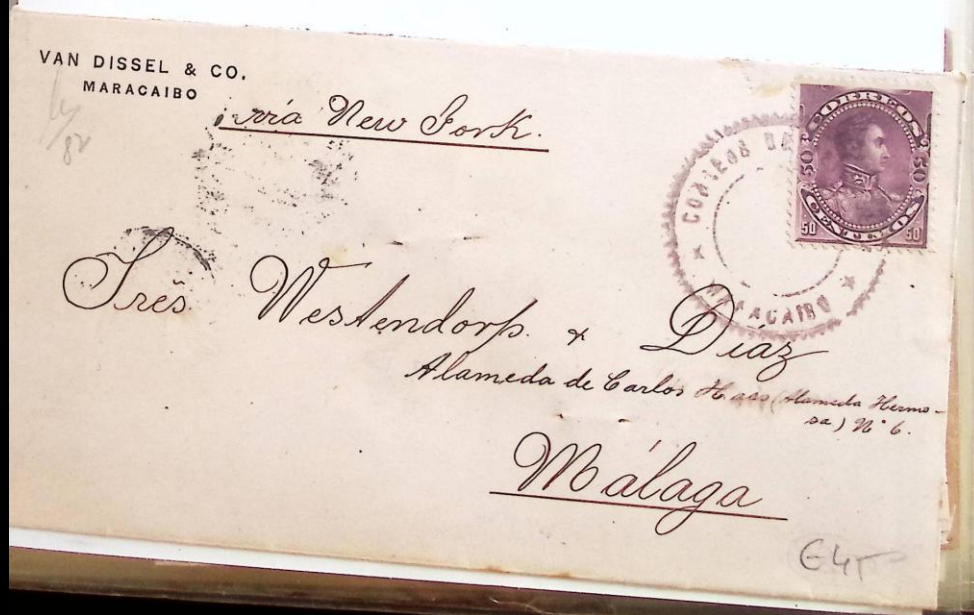 VAN DISSEL & CO.
MARACAIBO
vía New York.
CORREOS DE
MARACAIBO
CORREOS
50 50
CENTIMOS
50 50
Sres. Westendorp. & Díaz
Alameda de Carlos Haas (Alameda Hermo-
sa) Nº 6.
Málaga